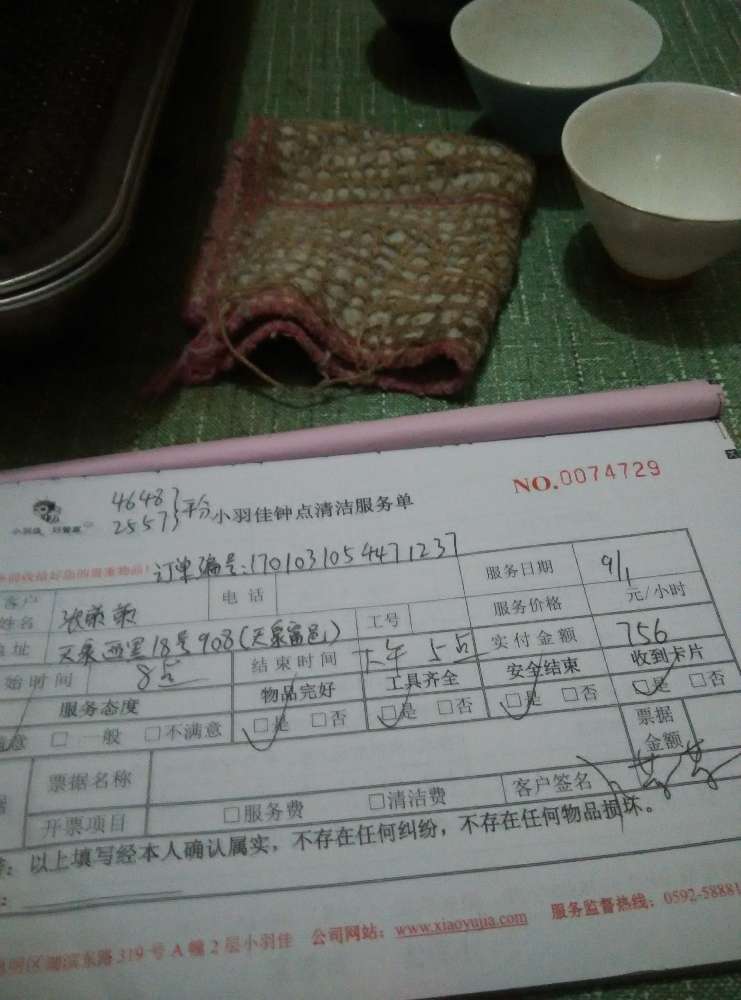 NO.0074729
4648}平分
2557
小羽佳钟点清洁服务单
小羽佳 好管家
订单编号:1701031054471237
客户姓名 电话 服务日期 9/1
地址 天泉西里18号908(天泉富邑) 工号 服务价格 元/小时
始时间 8点 结束时间 下午5点 实付金额 756
服务态度 物品完好 工具齐全 安全结束 收到卡片
意 □一般 □不满意 □是 □否 □是 □否 □是 □否 □是 □否
票据名称 票据金额
开票项目 □服务费 □清洁费 客户签名
以上填写经本人确认属实，不存在任何纠纷，不存在任何物品损坏。
明区湖滨东路319号A幢2层小羽佳 公司网站：www.xiaoyujia.com 服务监督热线：0592-58881